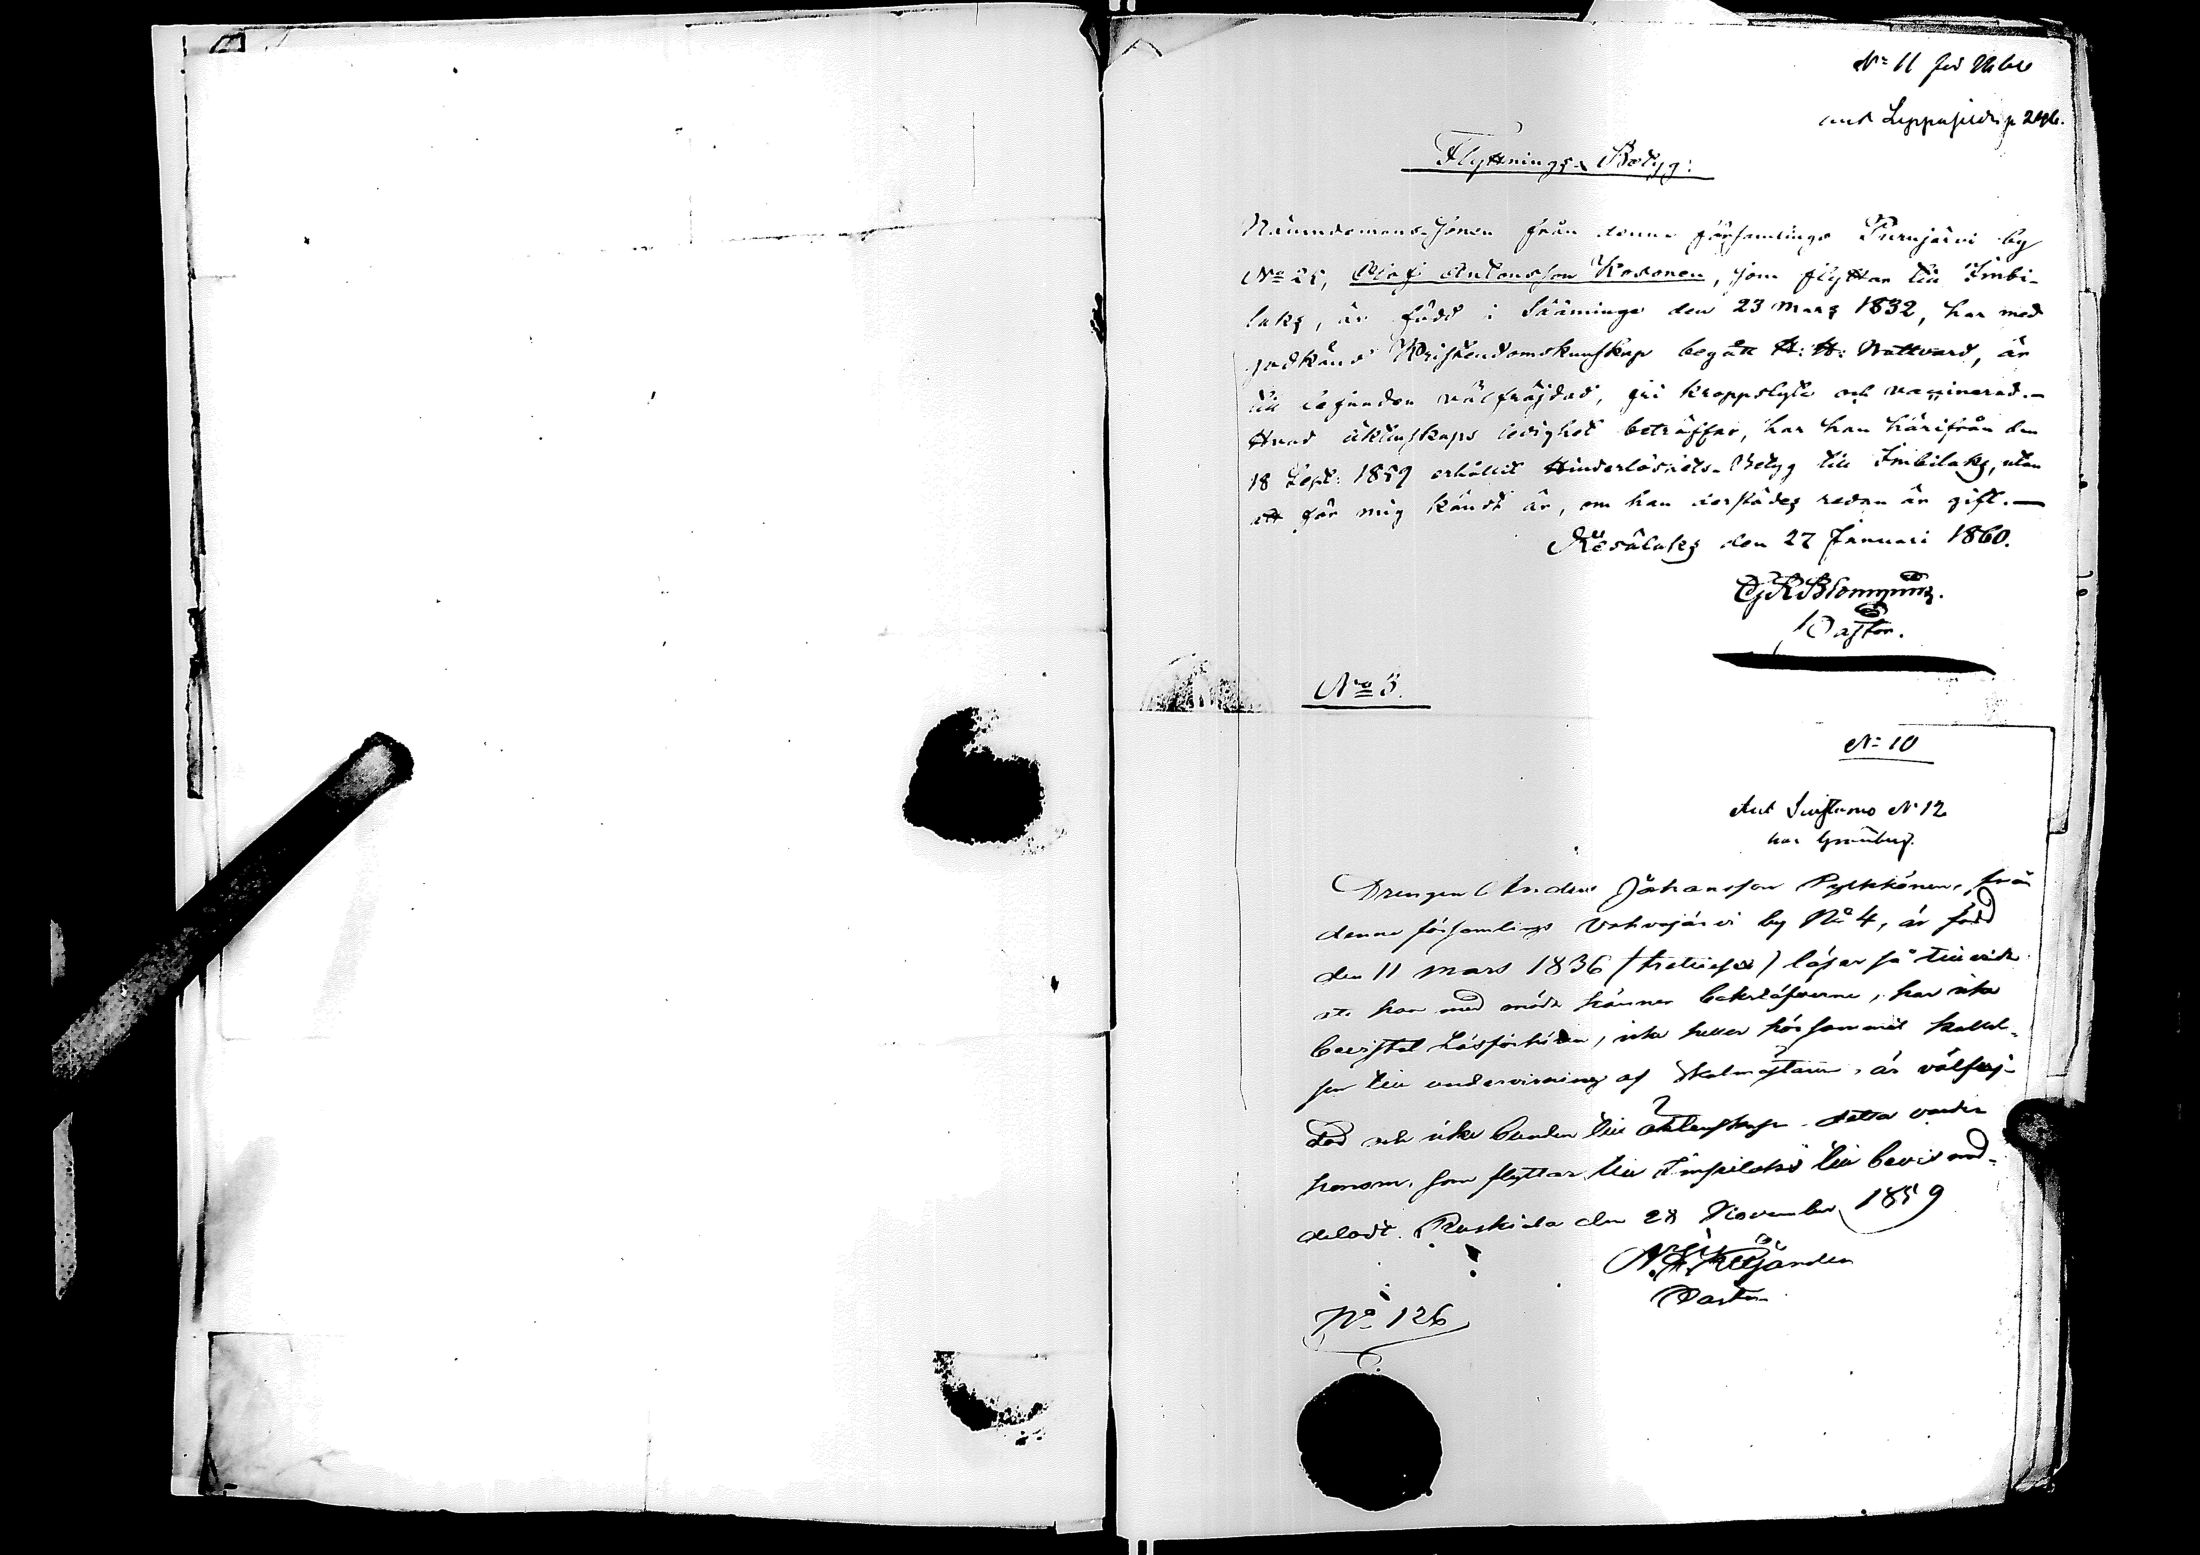 No 11
and Leppäsilda p 246.
Flyttnings-Betyg:
Nämndemans Sonen från denna församlings Purujärvi by
No 25, Olof Antonsson Kosonen, som flyttar till Imbi-
laks, är född i Sääminge den 23 Mars 1832, har med
godkänd Kristendomskunskap begått H: H: Nattvard, är
till lefnaden välfräjdad, fri kroppslyte och vaccinerad.-
Hvad äktenskaps ledighet beträffar, har han härifrån den
18 Sept: 1859 erhållit Hinderlöshets-Betyg till Imbilaks, utan
att för mig kändt är, om han derstädes redan är gift.—
Kesälaks den 27 Januari 1860.
Pastor.
No 3.
No 10
Ant Suistamo No 12
har
Drengen Anders Johansson Pylkkönen, från
denna församlings Vahvajärvi by No 4, är född
den 11 Mars 1836 läser så till vida
att han med möda känner bokstäfverna, har icke
bevistat Läsförhören, icke heller hörsammat kallel-
sen till undervisning af Skolmästaren, är välfräj-
dad och icke bunden till äktenskap. Detta varder
honom, som flyttar till Impilaks till bevis med-
deladt. Ruskiala den 28 November 1859
Pastor
No 126